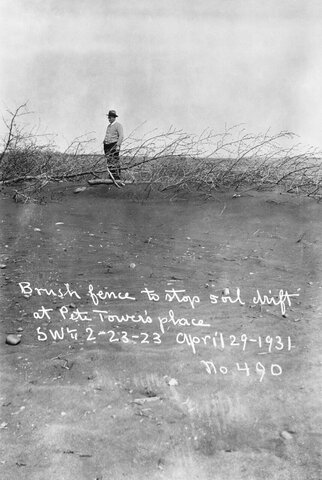 Brush fence to stop soil drift
at Pete Tower's place
SW¼ 2-23-23 April 29-1931
No. 490